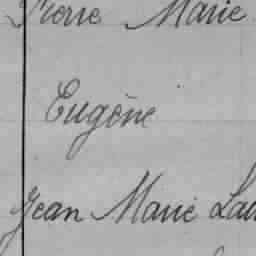 Pierre Marie
Eugène
Jean Marie